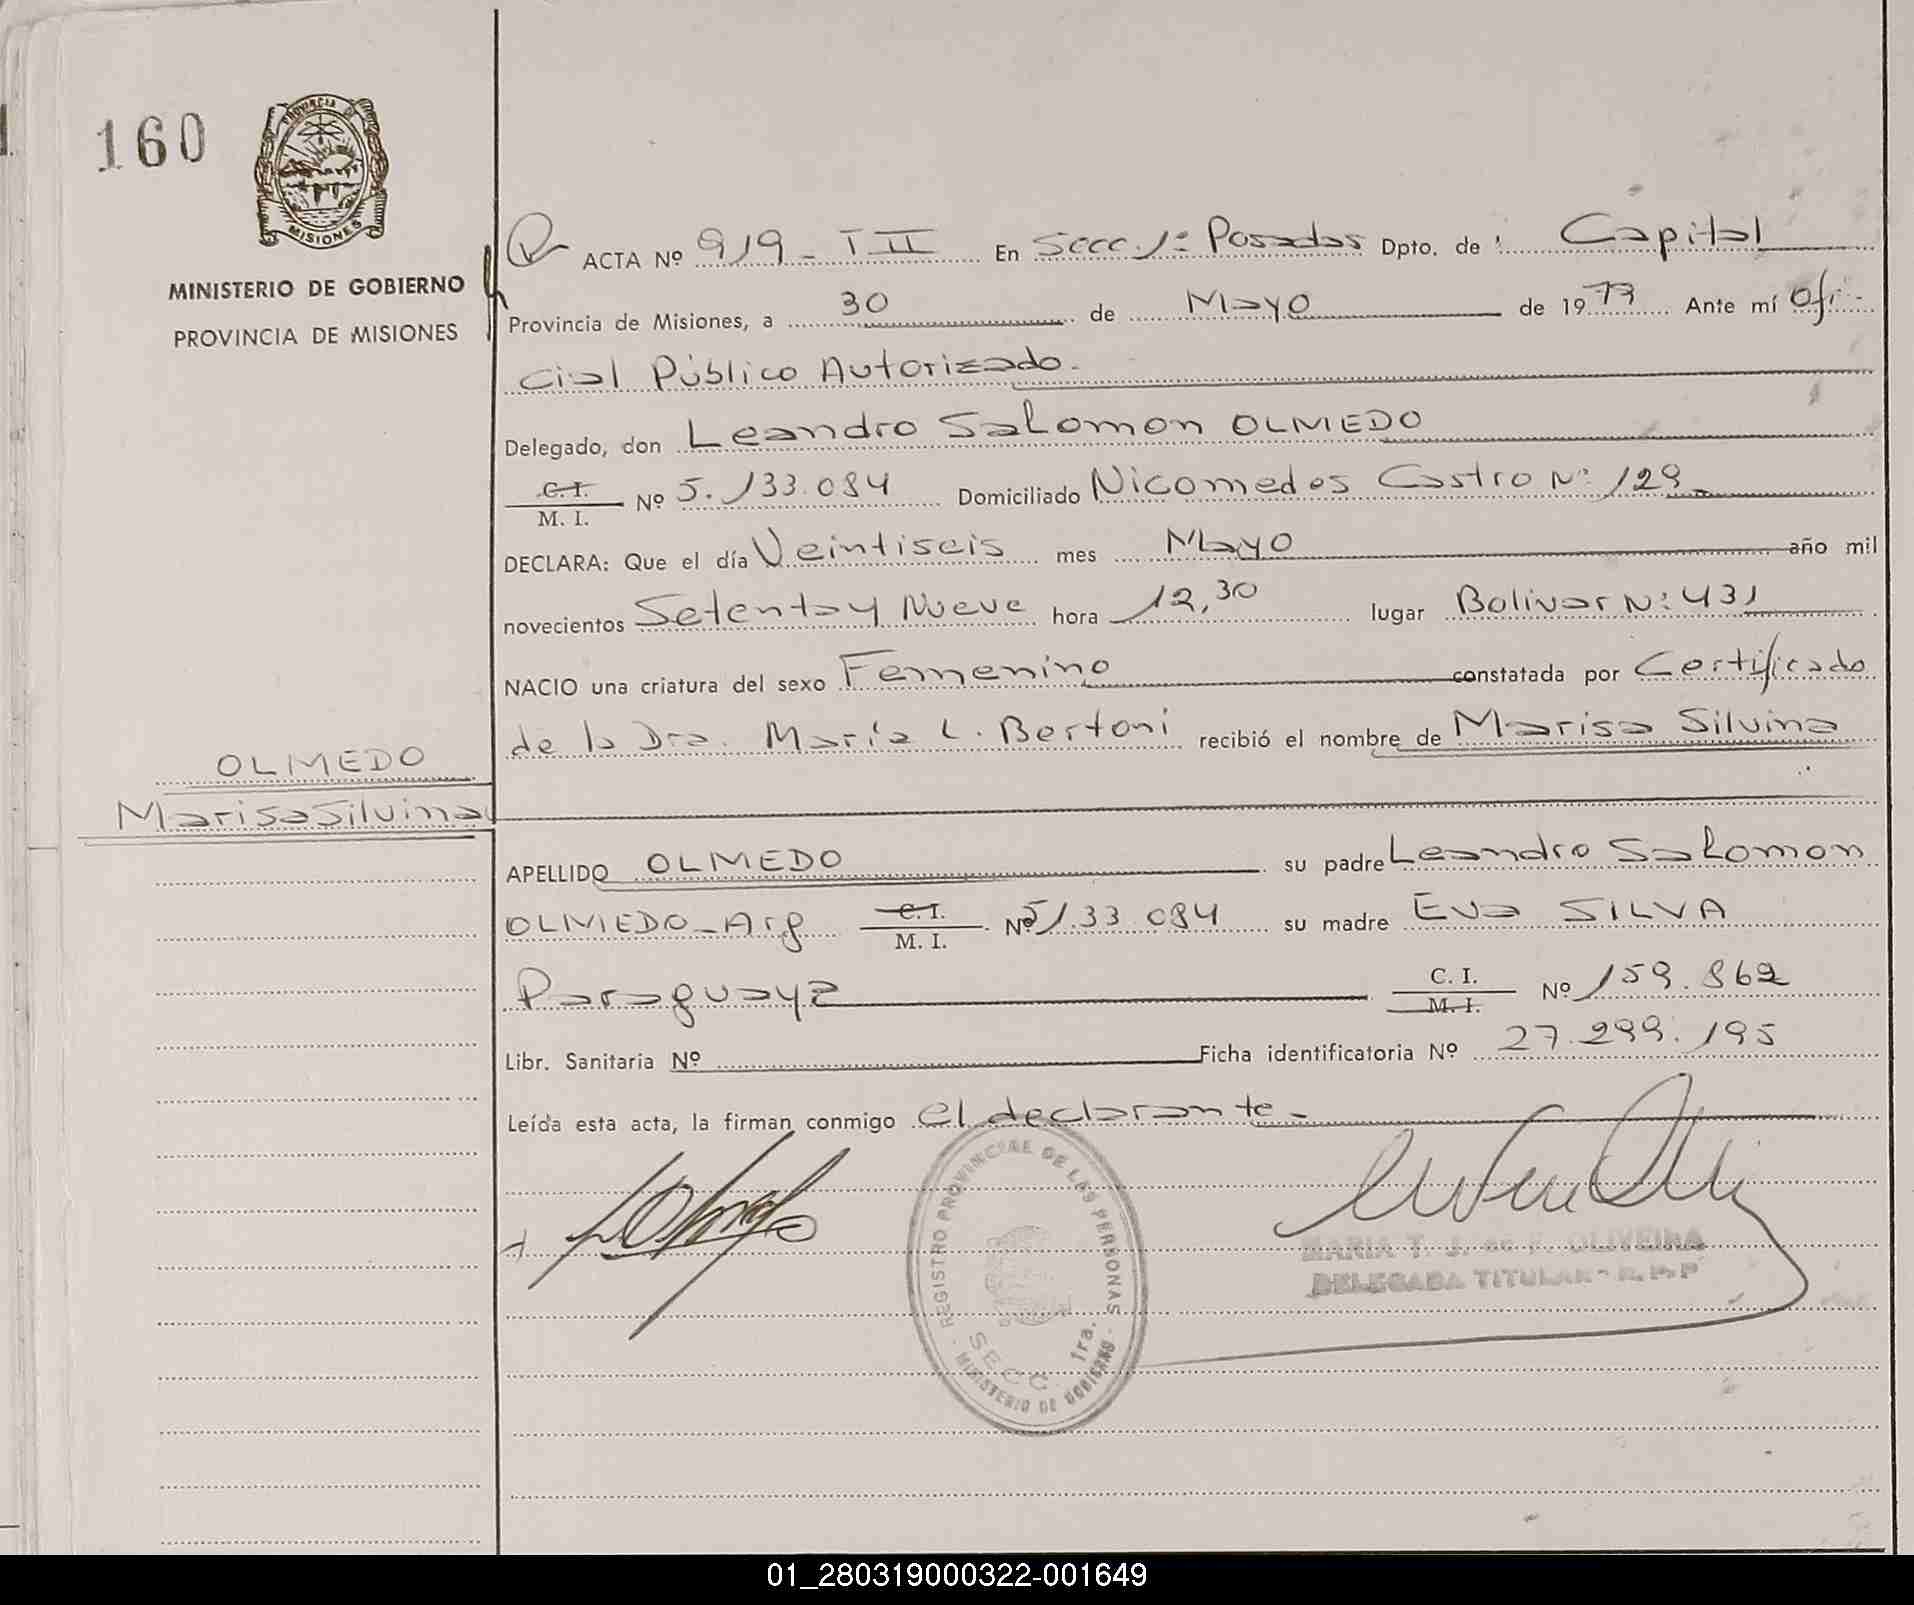 160
PROVINCIA DE
MISIONES
MINISTERIO DE GOBIERNO
PROVINCIA DE MISIONES
OLMEDO
Marisa Silvina
ACTA Nº 919 - T II En Secc. 1ª Posadas Dpto. de Capital
Provincia de Misiones, a 30 de Mayo de 1979 Ante mí Ofi-
cial Público Autorizado.
Delegado, don Leandro Salomon OLMEDO
C. I.
M. I. Nº 5.133.084 Domiciliado Nicomedes Castro Nº 129
DECLARA: Que el día Veintiseis mes Mayo año mil
novecientos Setenta y Nueve hora 12,30 lugar Bolivar Nº 431
NACIO una criatura del sexo Femenino constatada por Certificado
de la Dra. María L. Bertoni recibió el nombre de Marisa Silvina
APELLIDO OLMEDO su padre Leandro Salomon
OLMEDO - Arg C. I. M. I. Nº 5133.084 su madre Eva SILVA
Paraguaya C. I. M. I. Nº 159.862
Libr. Sanitaria Nº Ficha identificatoria Nº 27.299.195
Leída esta acta, la firman conmigo el declarante -
REGISTRO PROVINCIAL DE LAS PERSONAS
SECC. 1ra.
MINISTERIO DE GOBIERNO
MARIA T. J. de F. OLIVEIRA
DELEGADA TITULAR - R. P. P
01_280319000322-001649